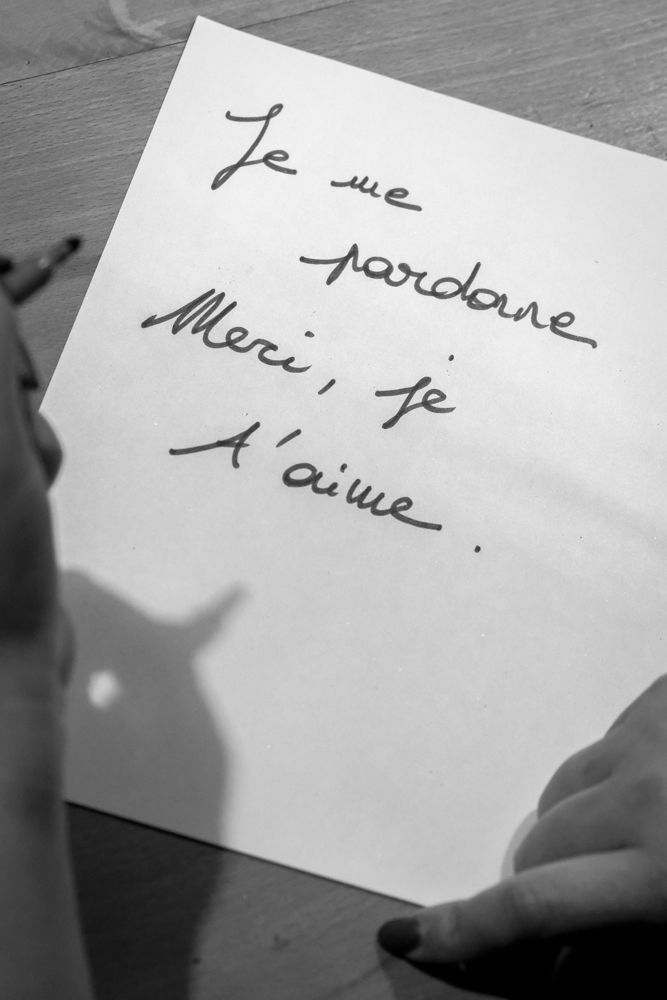 Je me
pardonne
Merci, je
t'aime.